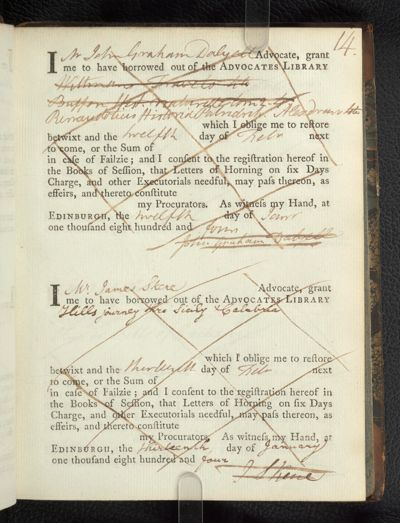 14.
I Mr John Graham Dalyell Advocate, grant
me to have borrowed out of the ADVOCATES LIBRARY
Travels 4to
Buffon Hist
Historia Patriarch. Alexdrinor 4to
which I oblige me to reſtore
betwixt and the twelfth day of Febr next
to come, or the Sum of
in caſe of Failzie; and I conſent to the regiſtration hereof in
the Books of Seſſion, that Letters of Horning on ſix Days
Charge, and other Executorials needful, may paſs thereon, as
effeirs, and thereto conſtitute
my Procurators. As witneſs my Hand, at
EDINBURGH, the twelfth day of Janr
one thouſand eight hundred and four
John Graham Dalyell
I Mr. James Skene Advocate, grant
me to have borrowed out of the ADVOCATES LIBRARY
Hills journey thro Sicily & Calabria
which I oblige me to reſtore
betwixt and the thirteenth day of Febr next
to come, or the Sum of
in caſe of Failzie; and I conſent to the regiſtration hereof in
the Books of Seſſion, that Letters of Horning on ſix Days
Charge, and other Executorials needful, may paſs thereon, as
effeirs, and thereto conſtitute
my Procurators. As witneſs my Hand, at
EDINBURGH, the thirteenth day of January
one thouſand eight hundred and four
J Skene